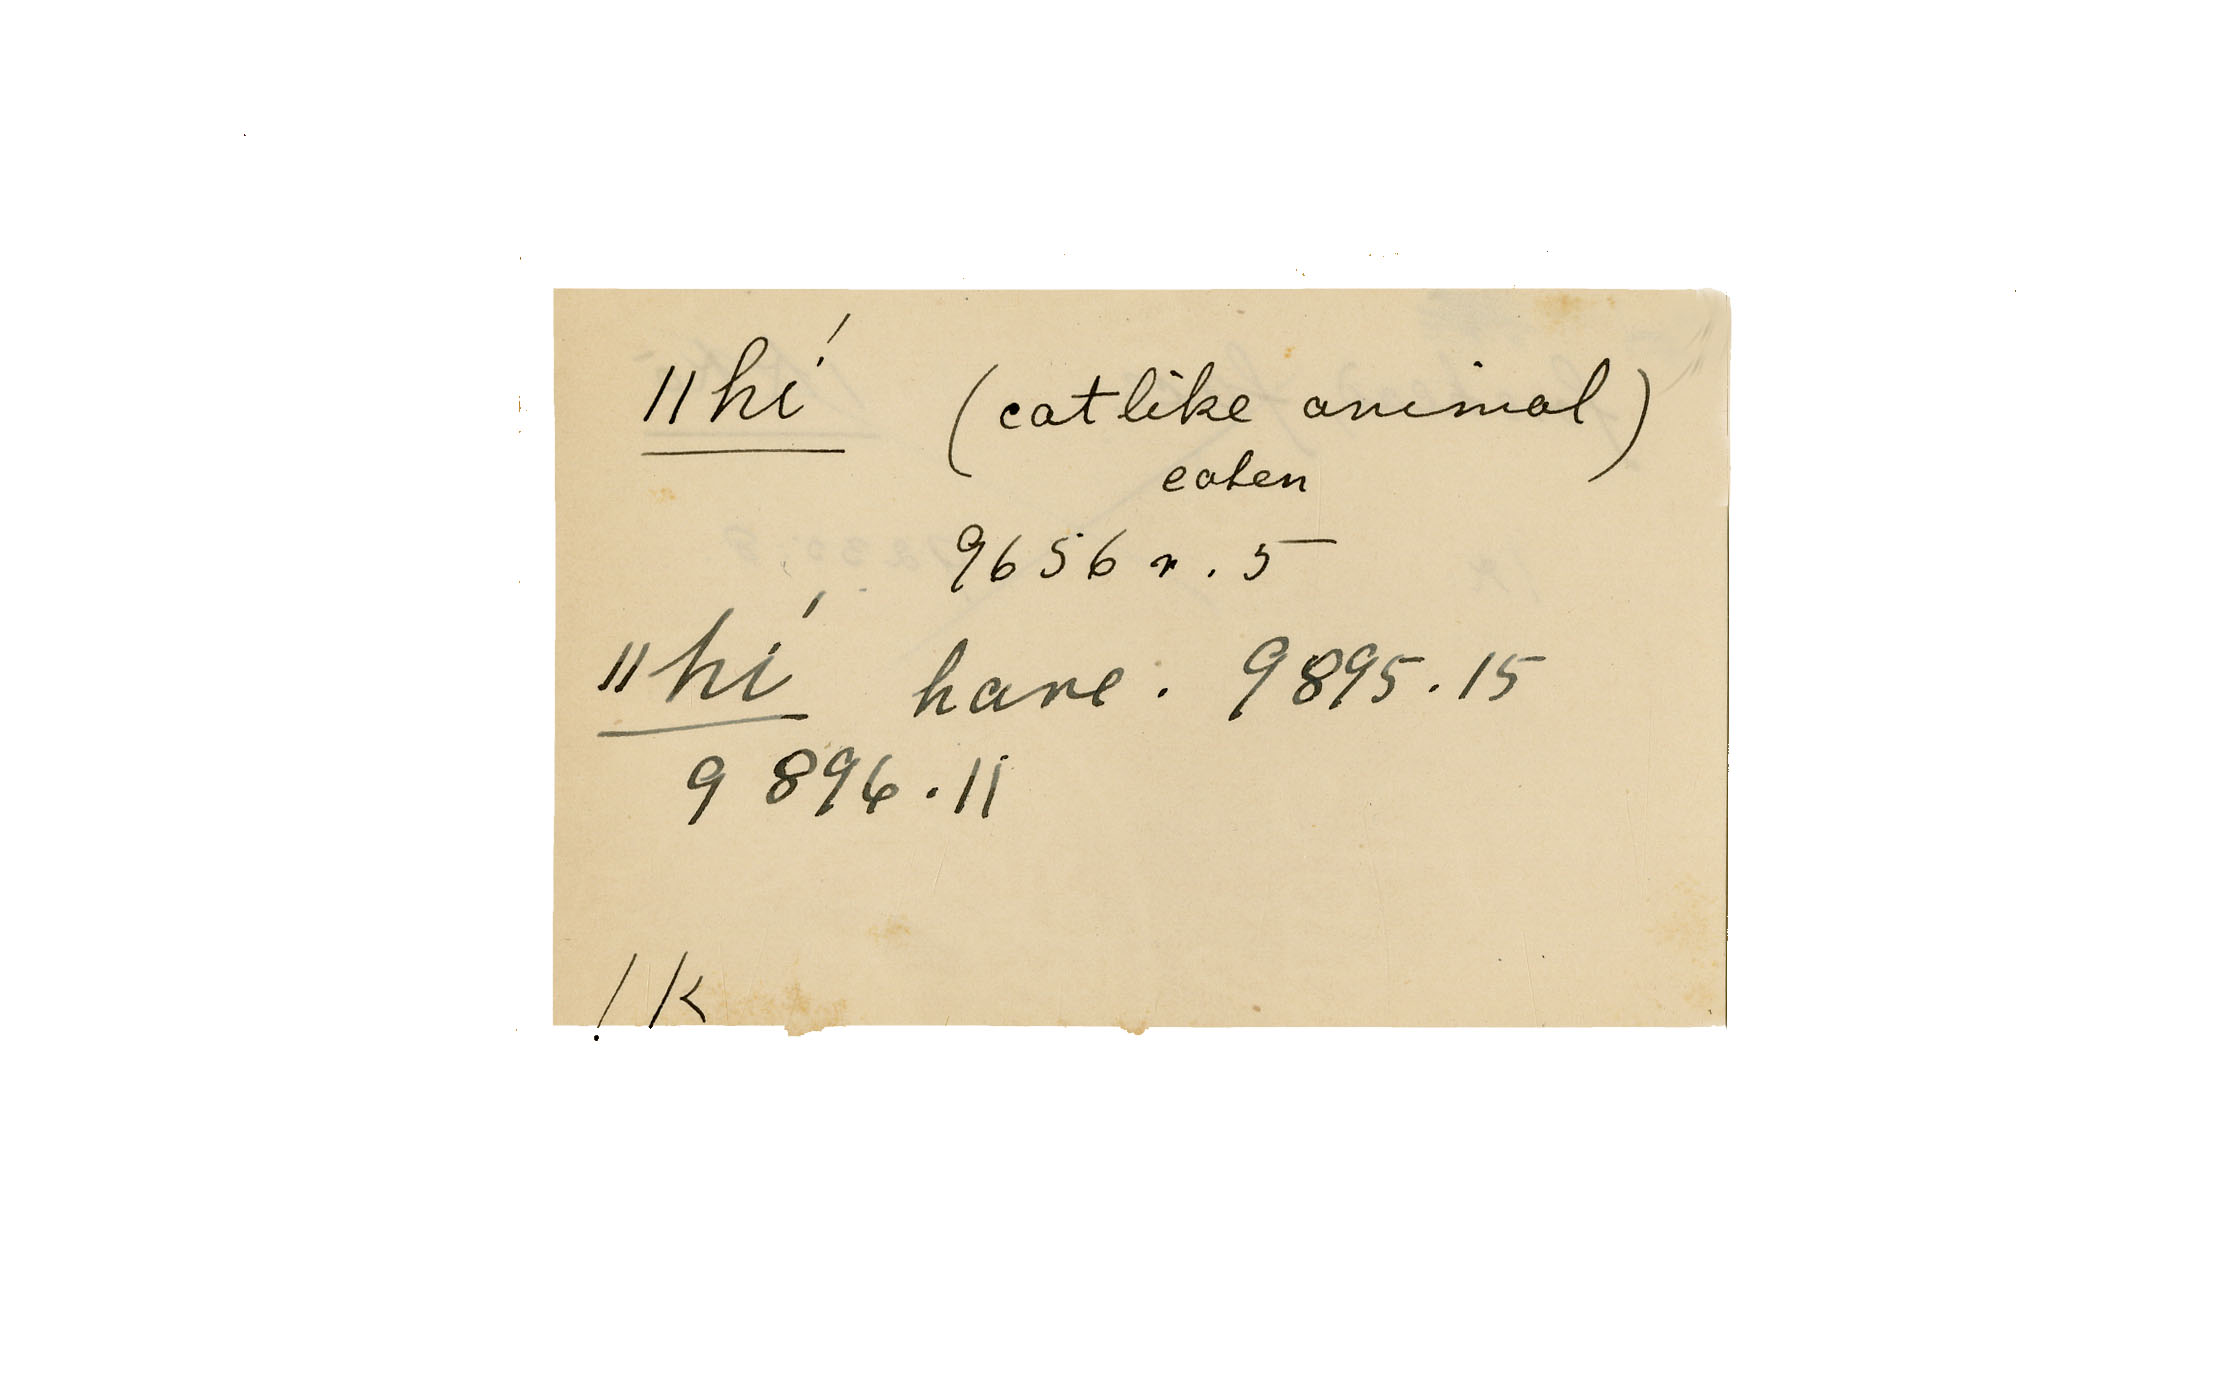 ǁhí! (catlike animal)
eaten
9656r.5
ǁhí! hare. 9895.15
9896.11
!K